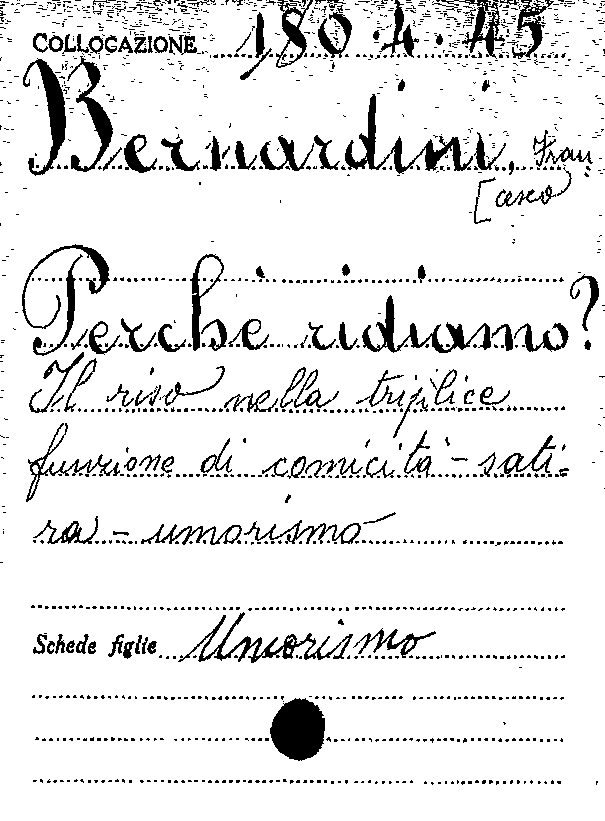 COLLOCAZIONE 180.4.45
Bernardini, Fran
[cesco
Perchè ridiamo?
Il riso nella triplice
funzione di comicità - sati=
ra - umorismo
Schede figlie Umorismo